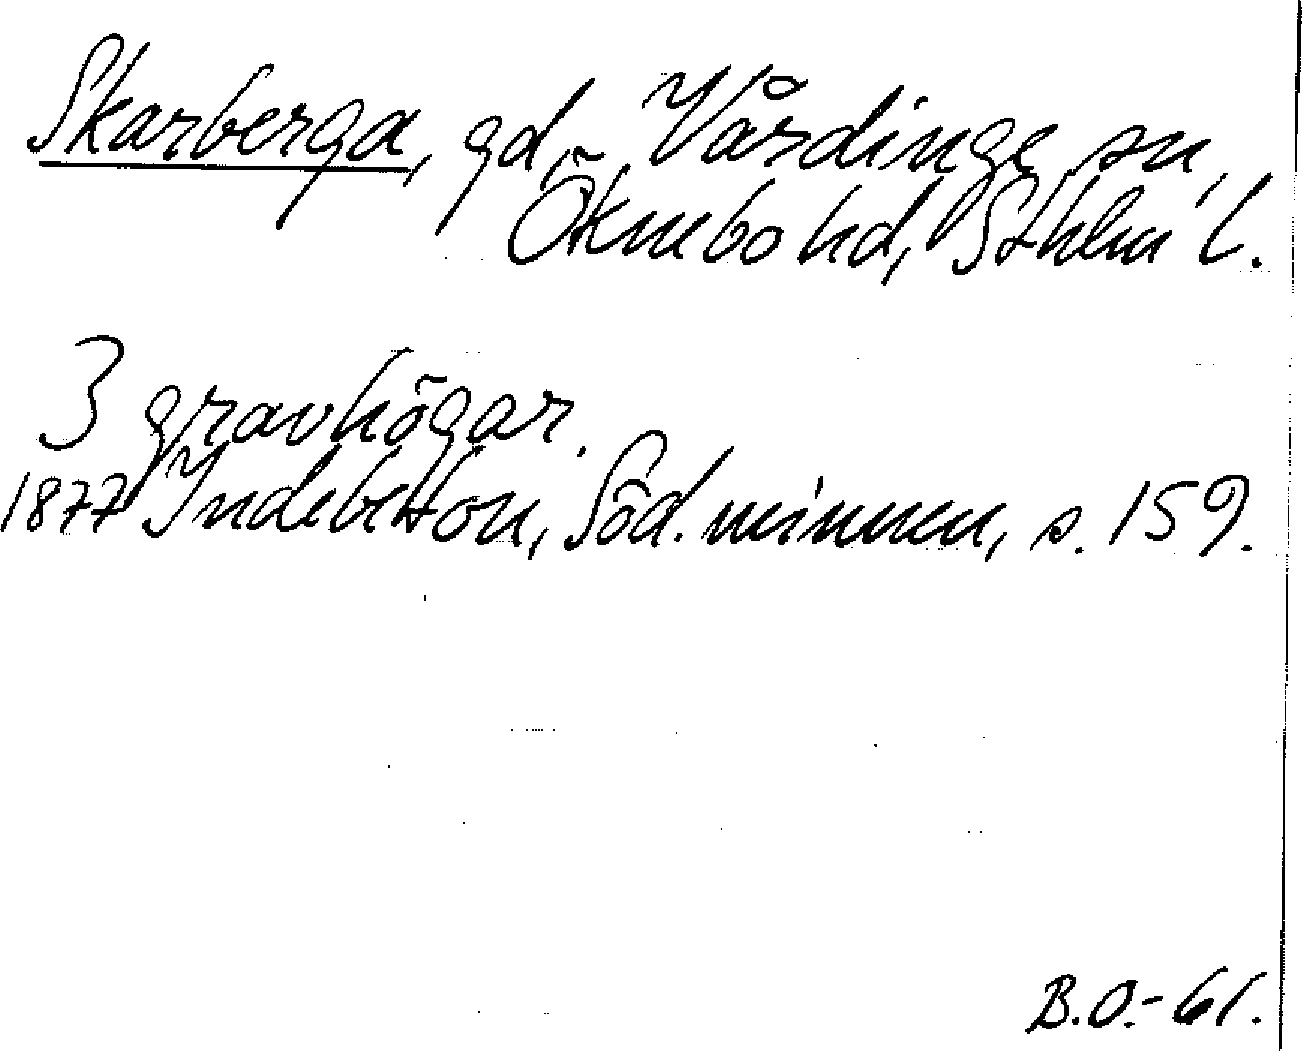 Skarberga, gd, Vårdinge sn,
Öknebo hd, Sthlm l.
3 gravhögar.
1877 Indebetou, Söd. minnen, s. 159.
B.O.-61.